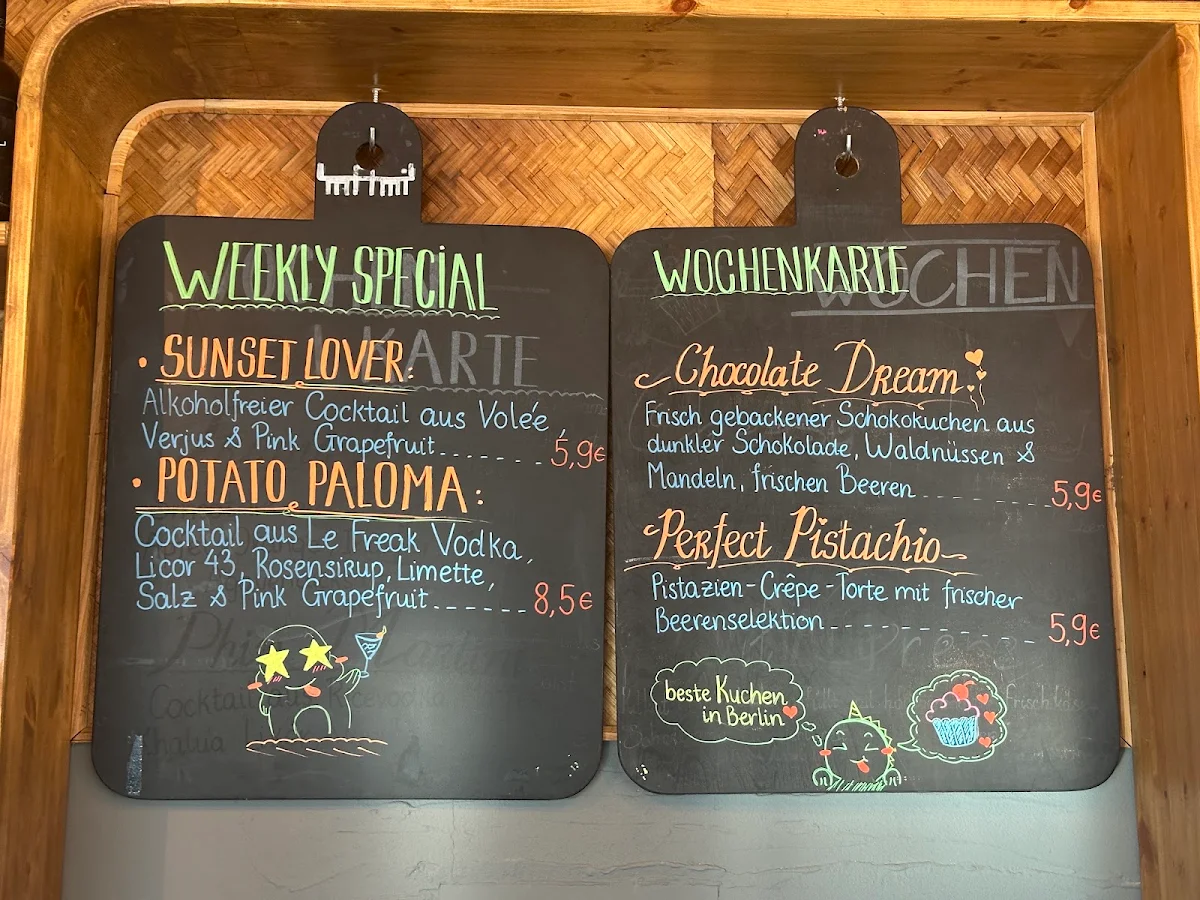 WEEKLY SPECIAL
• SUNSET LOVER:
Alkoholfreier Cocktail aus Volée,
Verjus & Pink Grapefruit....... 5,9€
• POTATO PALOMA:
Cocktail aus Le Freak Vodka,
Licor 43, Rosensirup, Limette,
Salz & Pink Grapefruit....... 8,5€
KARTE
WOCHENKARTE
WOCHEN
Chocolate Dream
Frisch gebackener Schokokuchen aus
dunkler Schokolade, Waldnüssen &
Mandeln, frischen Beeren 5,9€
Perfect Pistachio
Pistazien-Crêpe-Torte mit frischer
Beerenselektion 5,9€
beste Kuchen
in Berlin